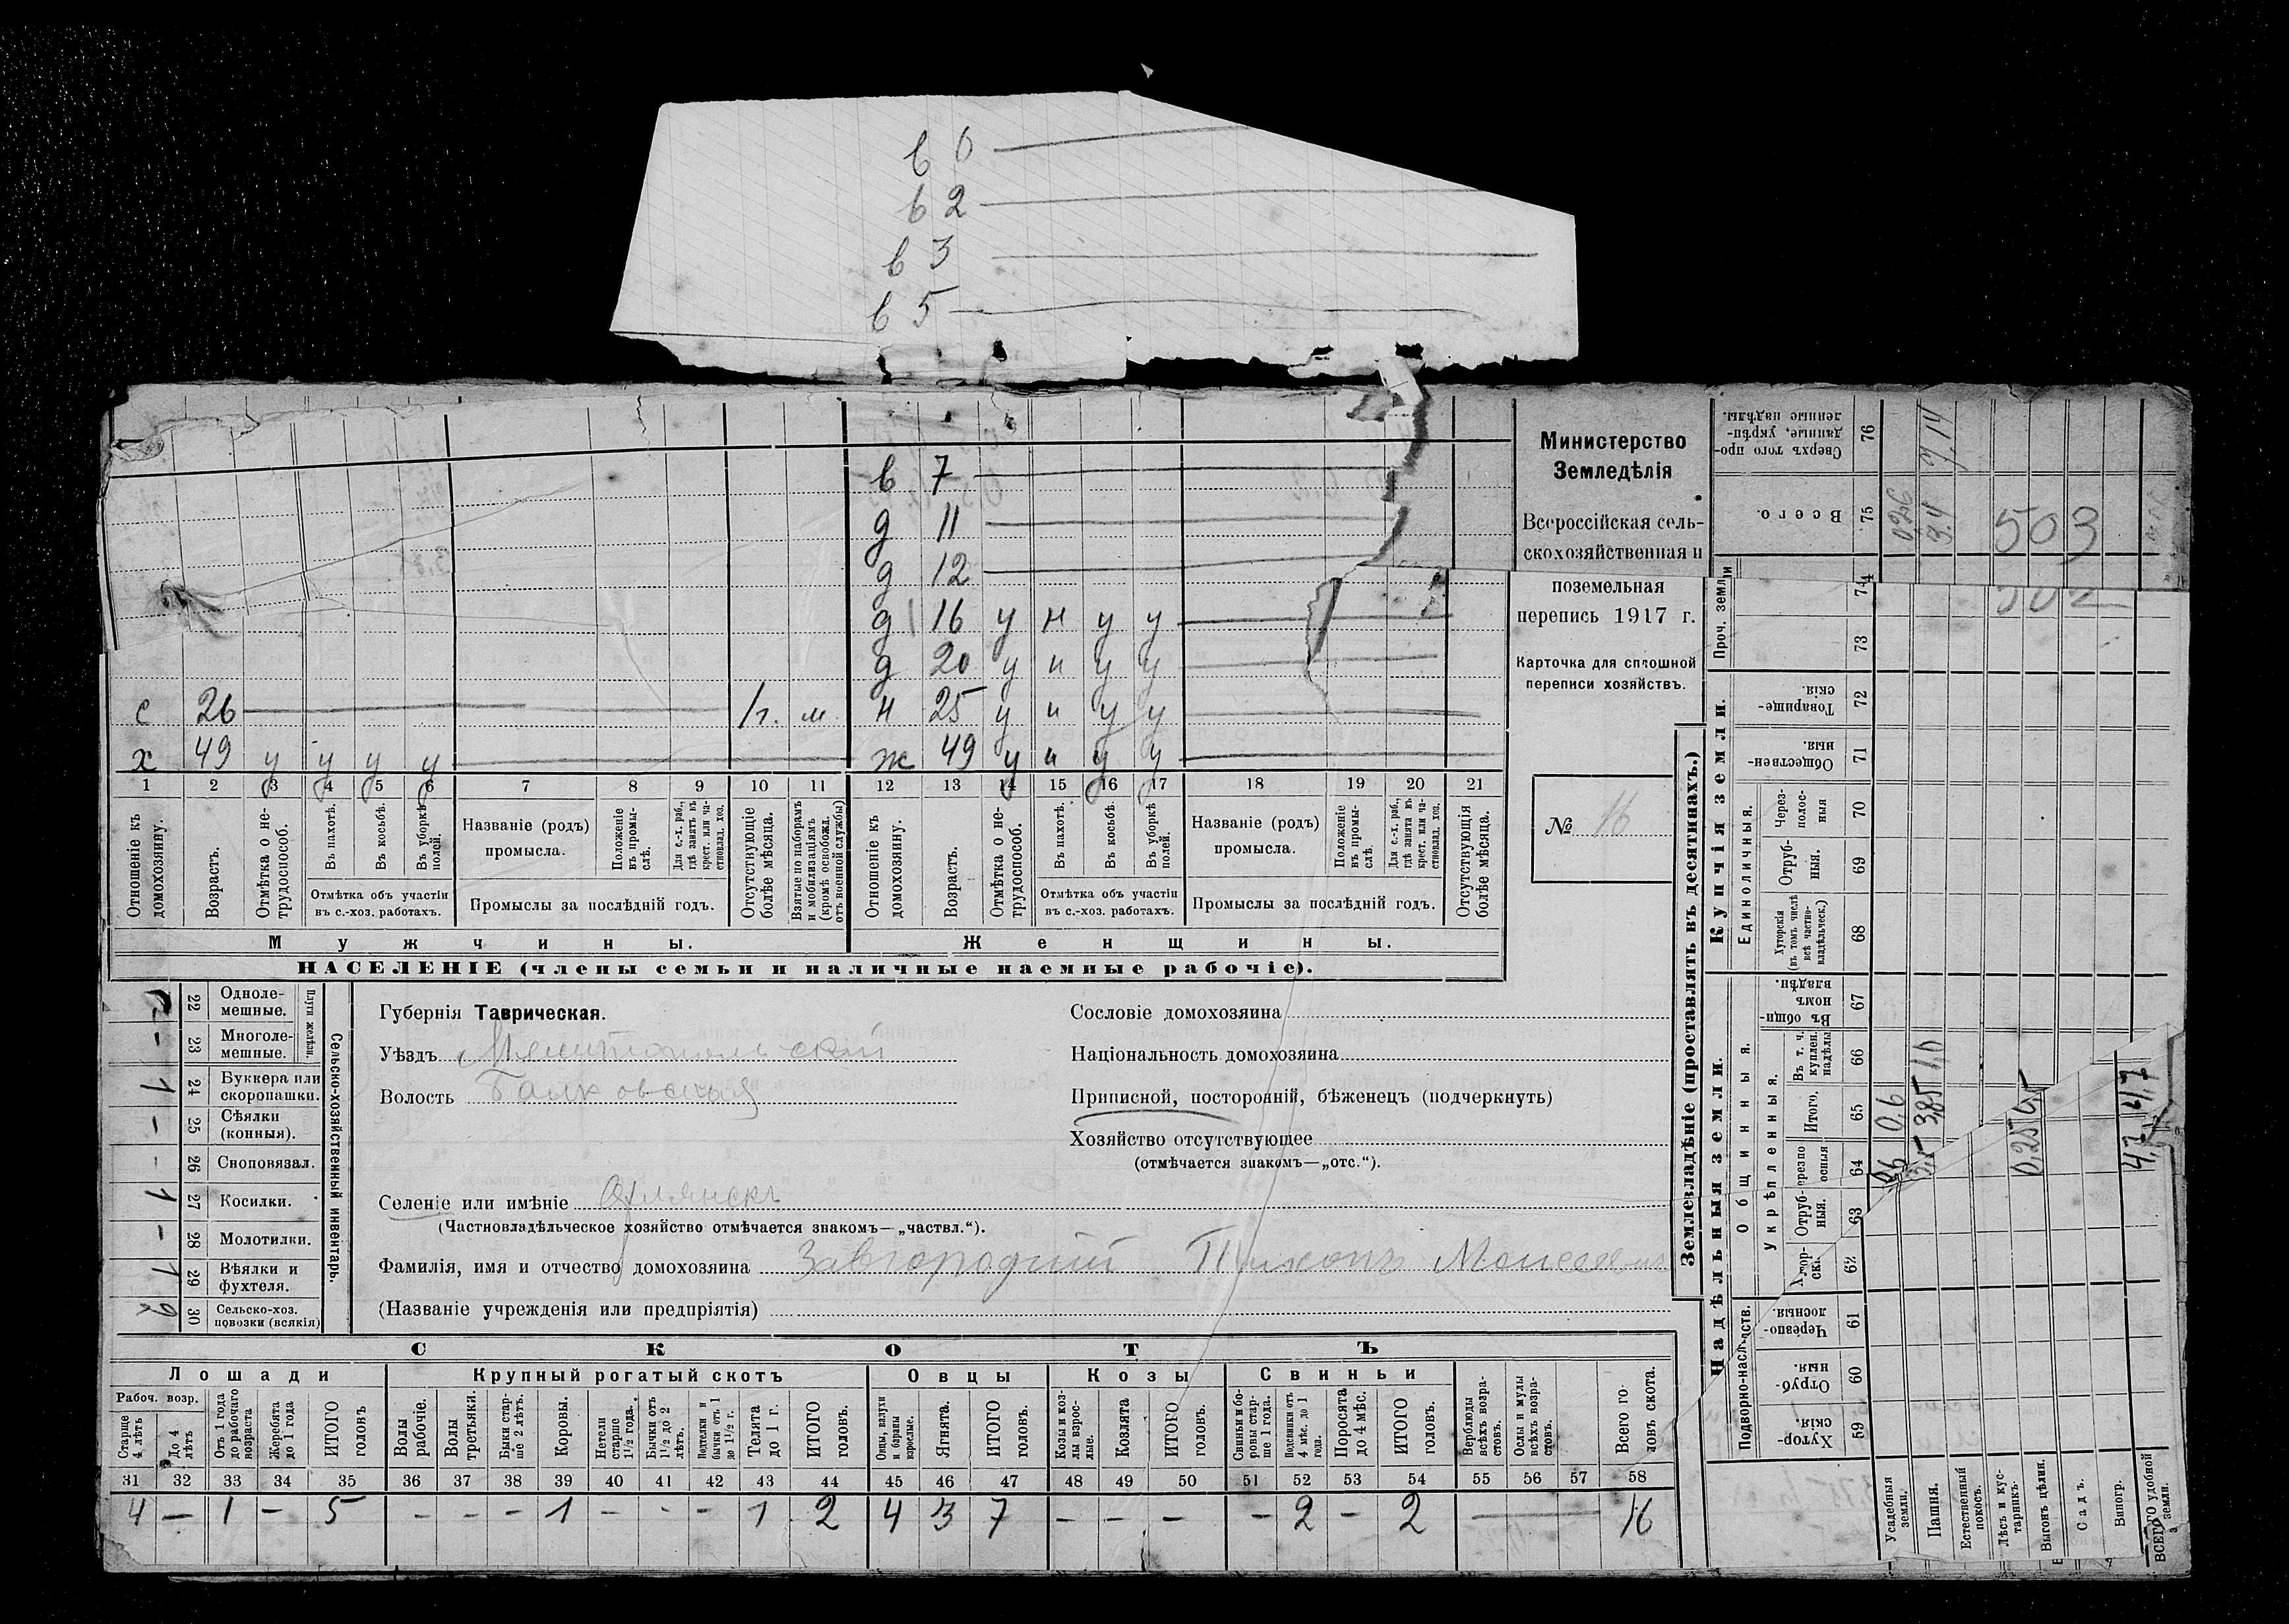 в 0
в 2
в 3
в 5
в 7
д 11
д 12
д 16 у н у у
д 20 у н у у
с 26 1г. м н 25 у н у у
х 49 у у у у ж 49 у н у у
1 2 3 4 5 6 7 8 9 10 11 12 13 14 15 16 17 18 19 20 21
Отношеніе къ домохозяину.
Возрастъ.
Отмѣтка о не-
трудоспособ.
Въ пахотѣ.
Въ косьбѣ.
Въ уборкѣ
полей.
Отмѣтка объ участіи
въ с.-хоз. работахъ.
Названіе (родъ)
промысла.
Положеніе
въ промы-
слѣ.
Для с.-х. раб.,
гдѣ занятъ въ
крест. или ча-
стновлад. хоз.
Промыслы за послѣдній годъ.
Отсутствующіе
болѣе мѣсяца.
Взятые по наборамъ
и мобилизаціямъ
(кромѣ освобожд.
отъ военной службы)
Отношеніе къ
домохозяину.
Возрастъ.
Отмѣтка о не-
трудоспособ.
Въ пахотѣ.
Въ косьбѣ.
Въ уборкѣ
полей.
Отмѣтка объ участіи
въ с.-хоз. работахъ.
Названіе (родъ)
промысла.
Положеніе
въ промы-
слѣ.
Для с.-х. раб.,
гдѣ занята въ
крест. или ча-
стновлад. хоз.
Промыслы за послѣдній годъ.
Отсутствующія
болѣе мѣсяца.
Мужчины.
Женщины.
НАСЕЛЕНІЕ (члены семьи и наличные наемные рабочіе).
Министерство
Земледѣлія
Всероссійская сель-
скохозяйственная и
поземельная
перепись 1917 г.
Карточка для сплошной
переписи хозяйствъ.
№ 16
22 Однолемешные.
23 Многолемешные.
Плуги желѣзн.
1 24 Буккера или
скоропашки.
25 Сѣялки
(конныя).
26 Сноповязал.
1 27 Косилки.
28 Молотилки.
1 29 Вѣялки и
фухтеля.
2 30 Сельско-хоз.
повозки (всякія)
Сельско-хозяйственный инвентарь.
Губернія Таврическая.
Уѣздъ Мелитопольскій
Волость Балковская
Селеніе или имѣніе Охлянскъ
(Частновладѣльческое хозяйство отмѣчается знакомъ—„частвл.“).
Фамилія, имя и отчество домохозяина Завгородній Тихонъ Моисеевичъ
(Названіе учрежденія или предпріятія)
Сословіе домохозяина
Національность домохозяина
Приписной, посторонній, бѣженецъ (подчеркнуть)
Хозяйство отсутствующее
(отмѣчается знакомъ—„отс.“).
СКОТЪ
Лошади Крупный рогатый скотъ Овцы Козы Свиньи
Рабоч. возр.
Старше
4 лѣтъ
До 4
лѣтъ
Отъ 1 года
до рабочаго
возраста
Жеребята
до 1 года
ИТОГО
головъ
Волы
рабочіе.
Волы
третьяки.
Быки стар-
ше 2 лѣтъ.
Коровы.
Нетели
старше
1½ года.
Бычки отъ
1½ до 2
лѣтъ.
Подтелки и
бычки отъ 1
до 1½ г.
Телята
до 1 г.
ИТОГО
головъ.
Овцы, валухи
и бараны
взрослые.
Ягнята.
ИТОГО
головъ.
Козы и коз-
лы взрос-
лые.
Козлята
ИТОГО
головъ.
Свиньи и бо-
ровы стар-
ше 1 года.
Подсвинки отъ
4 мѣс. до 1
года.
Поросята
до 4 мѣс.
ИТОГО
головъ.
Верблюды
всѣхъ возра-
стовъ.
Ослы и мулы
всѣхъ возра-
стовъ.
Всего го-
ловъ скота.
31 32 33 34 35 36 37 38 39 40 41 42 43 44 45 46 47 48 49 50 51 52 53 54 55 56 57 58
4 — 1 — 5 - - - 1 - - - 1 2 4 3 7 - - - - 2 - 2 — 16
Землевладѣніе (проставлять въ десятинахъ.)
Надѣльныя земли.
Купчія земли.
Подворно-наслѣдств.
Общинныя.
Укрѣпленныя.
Единоличныя.
Проч. земли
Хуторскія. 59
Отрубныя. 60
Черезполосныя. 61
62
Отрубныя. 63
64
Итого. 65
Въ т. ч.
куплен.
надѣлы 66
Въ общинномъ
владѣн. 67
Хуторскія
(въ томъ числѣ
всѣ частно-
владѣльческ.) 68
Отрубныя. 69
Черезполосныя 70
Общественныя. 71
Товарищескія. 72
73
74
Всего. 75
Сверхъ того про-
данные, укрѣп-
ленные надѣлы. 76
Усадебныя
земли.
Пашня.
Естественный
покосъ.
Лѣсъ и кус-
тарникъ.
Выгонъ цѣлин.
Садъ.
Виногр.
ВСЕГО удобной
земли.
0,6 0,6
3,85 1,0
0,25
4,7 4,7
503